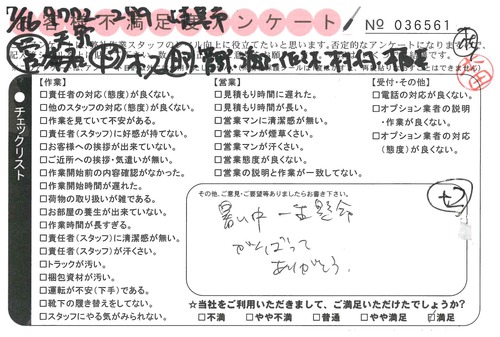 お客様不満足度アンケート
No 036561
【作業】
□責任者の対応(態度)が良くない。
□他のスタッフの対応(態度)が良くない。
□作業を見ていて不安がある。
□責任者(スタッフ)に好感が持てない。
□お客様への挨拶が出来ていない。
□ご近所への挨拶・気遣いが無い。
□作業開始前の内容確認がなかった。
□作業開始時間が遅れた。
□荷物の取り扱いが雑である。
□お部屋の養生が出来ていない。
□作業時間が長すぎる。
□責任者(スタッフ)に清潔感が無い。
□責任者(スタッフ)が汗くさい。
□トラックが汚い。
□梱包資材が汚い。
□運転が不安(下手)である。
□靴下の履き替えをしてない。
□スタッフにやる気がみられない。
【営業】
□見積もり時間に遅れた。
□見積もり時間が長い。
□営業マンに清潔感が無い。
□営業マンが煙草くさい。
□営業マンが汗くさい。
□営業態度が良くない。
□営業の説明と作業が一致してない。
【受付・その他】
□電話の対応が良くない。
□オプション業者の説明
・作業が良くない。
□オプション業者の対応
(態度)が良くない。
チェックリスト
その他、ご意見・ご要望等ありましたらお書き下さい。
暑い中 一生懸命
がんばって
ありがとう。
+2
☆当社をご利用いただきまして、ご満足いただけたでしょうか?
□不満 □やや不満 □普通 □やや満足 ☑満足